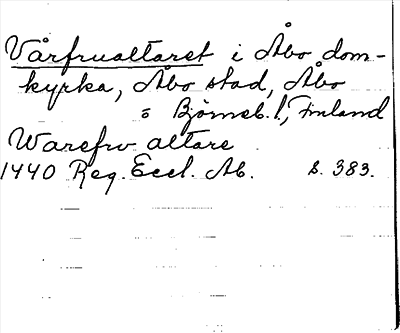 Vårfrualtaret i Åbo dom-
kyrka, Åbo stad, Åbo
o Björneb. l., Finland
Warefrv altare
1440 Reg. Eccl. Ab. s. 383.